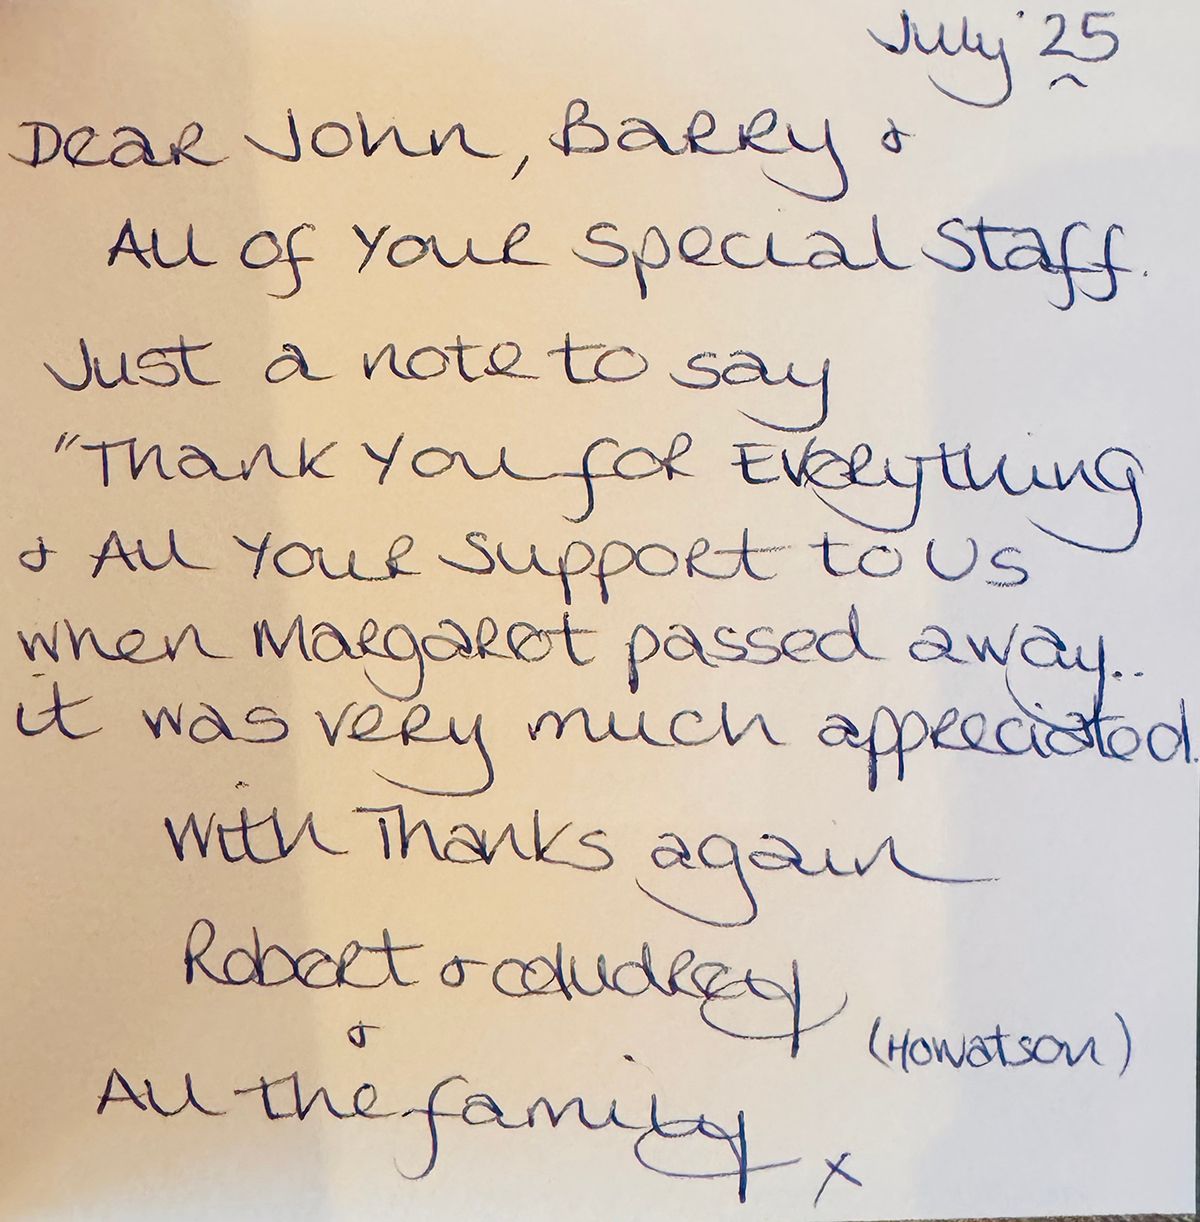 July '25
Dear John, Barry &
All of your special staff.
Just a note to say
"Thank you for Everything
& All your support to Us
when Margaret passed away..
it was very much appreciated.
With Thanks again
Robert & Audrey
(Howatson)
&
All the family x